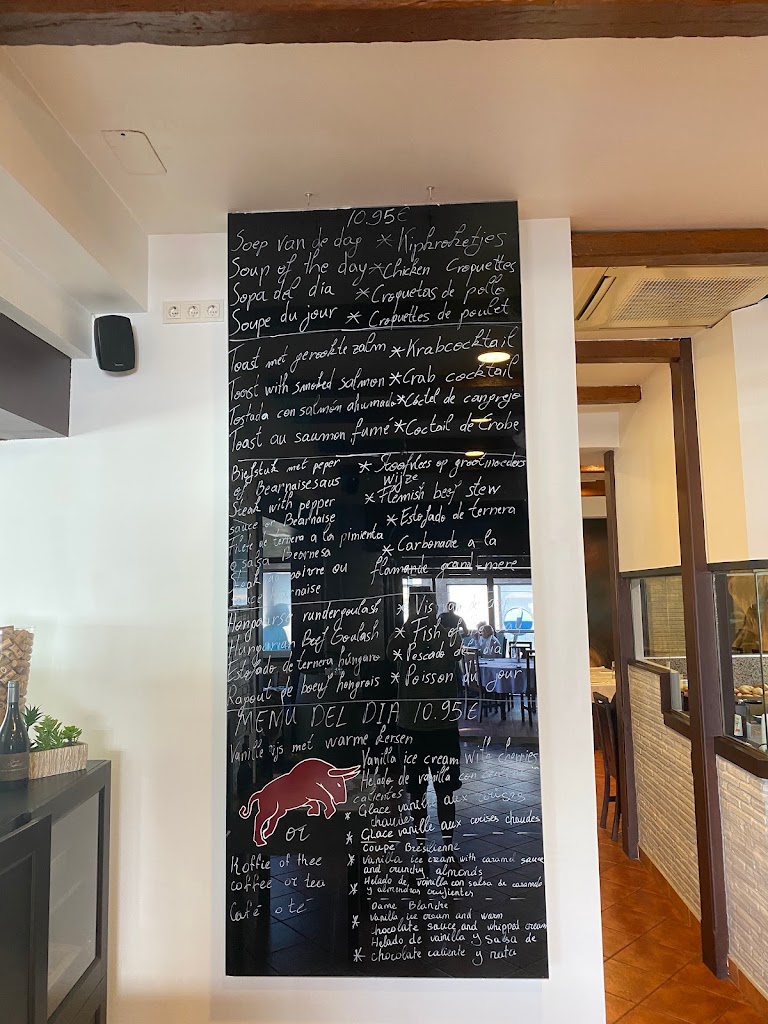 10.95€
Soep van de dag * Kipkroketjes
Soup of the day * Chicken Croquettes
Sopa del dia * Croquetas de pollo
Soupe du jour * Croquettes de poulet
Toast met gerookte zalm * Krabcocktail
Toast with smoked salmon * Crab cocktail
Tostada con salmon ahumado * Cóctel de cangrejo
Toast au saumon fumé * Coctail de Crabe
Biefstuk met peper * Stoofvlees op grootmoeders
of Bearnaisesaus wijze
Steak with pepper * Flemish beef stew
sauce or Bearnaise * Estofado de ternera
de ternera a la pimienta
o salsa Bearnesa * Carbonade a la
poivre ou flamande grand-mere
Hongaarse rundergoulash *
Hungarian Beef Goulash * Fish of
Estofado de ternera húngaro * Pescado del dia
Ragout de boeuf hongrois * Poisson du jour
MENU DEL DIA 10.95€
Vanille ijs met warme kersen
Vanilla ice cream with cherries
Helado de vainilla con
calientes
* Glace vanille aux
chaudes
* Glace vanille aux cerises chaudes
or
Coupe Brésilienne
Koffie of thee
* Vanilla ice cream with caramel sauce
and crunchy almonds
coffee or tea
* Helado de vainilla con salsa de caramelo
y almendras crujientes
Café o té
Dame Blanche
* Vanilla ice cream and warm
chocolate sauce and whipped cream
Helado de vainilla y salsa de
* chocolate caliente y nata